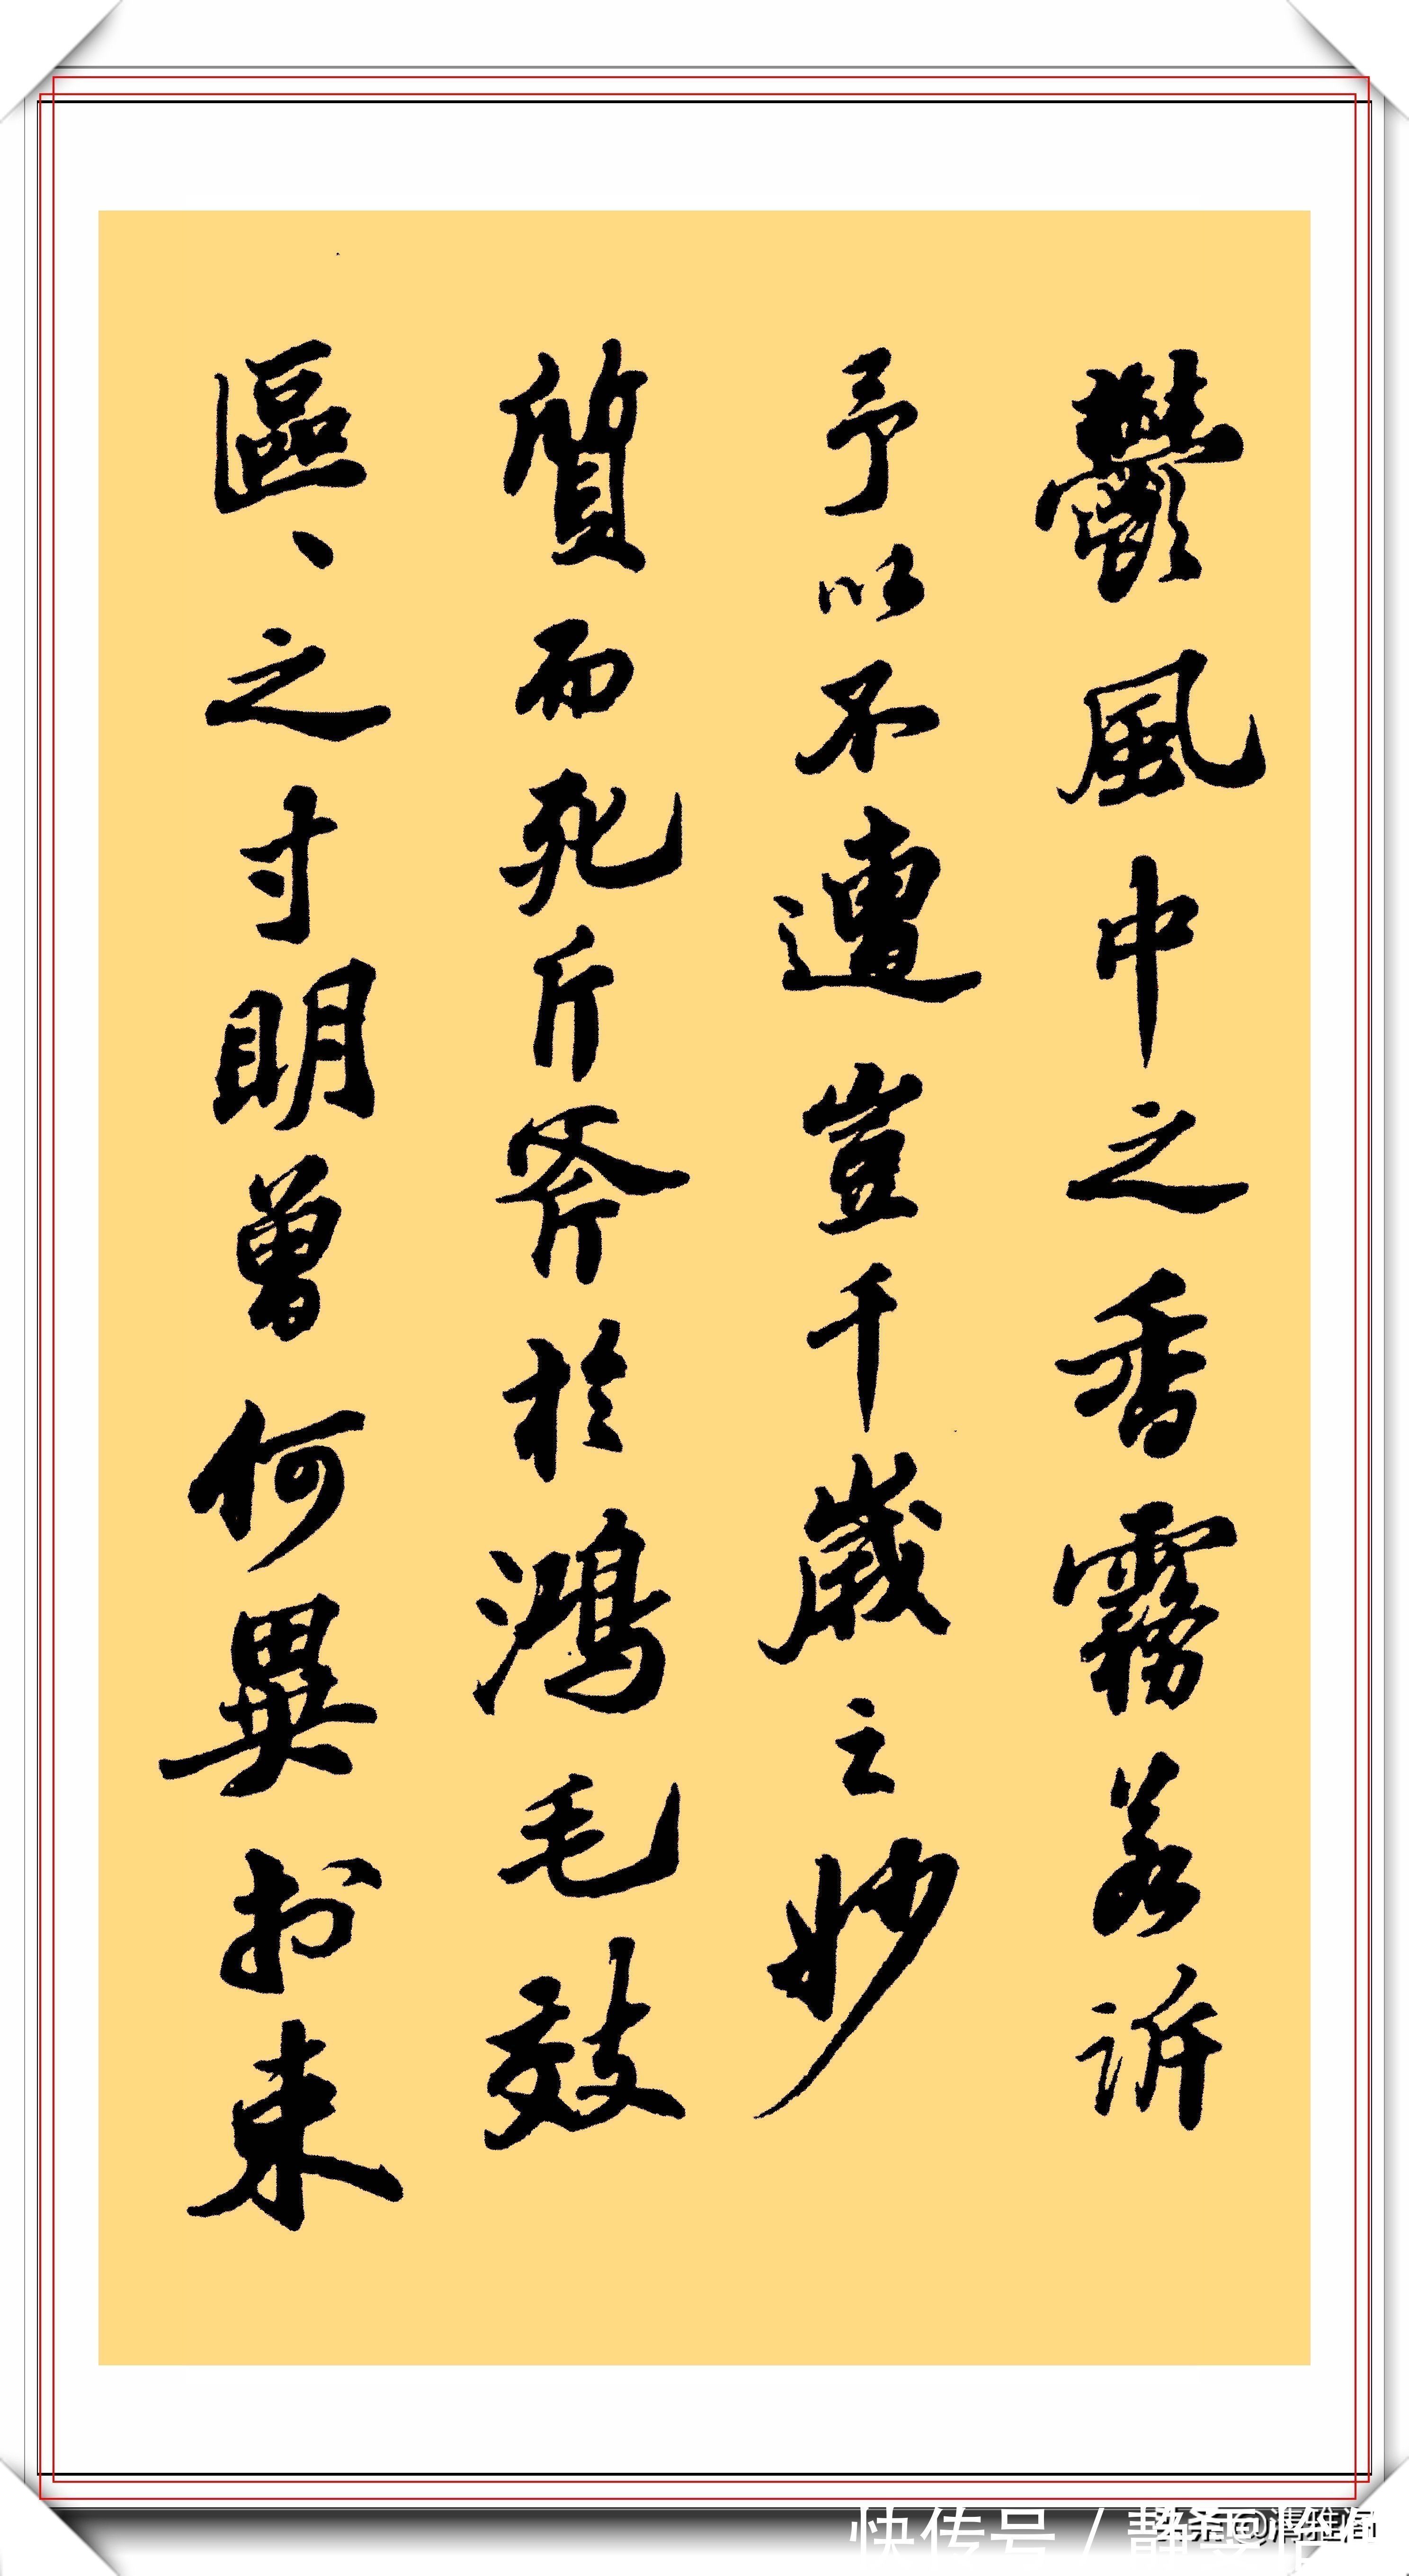 鬱風中之香霧若訴
予以不遭豈千歲之妙
質而死斤斧於鴻毛效
區、之寸明曾何異於束
快传号 /